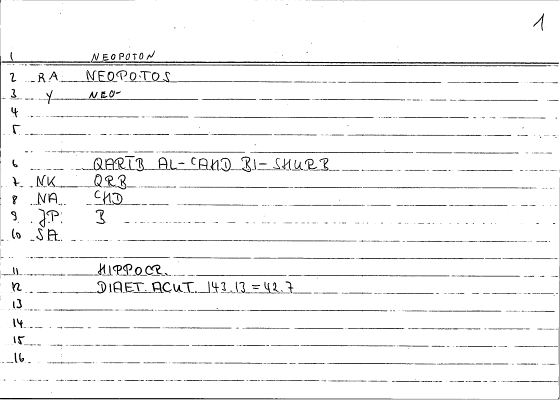 1
1 NEOPOTON
2 RA NEOPOTOS
3 Y NEO-
4
5
6 QARIB AL-ʿAHD BI-SHURB
7 NK QRB
8 NA ʿHD
9 JP B
10 SA
11 HIPPOCR.
12 DIAET. ACUT. 143.13 = 42.7
13
14
15
16